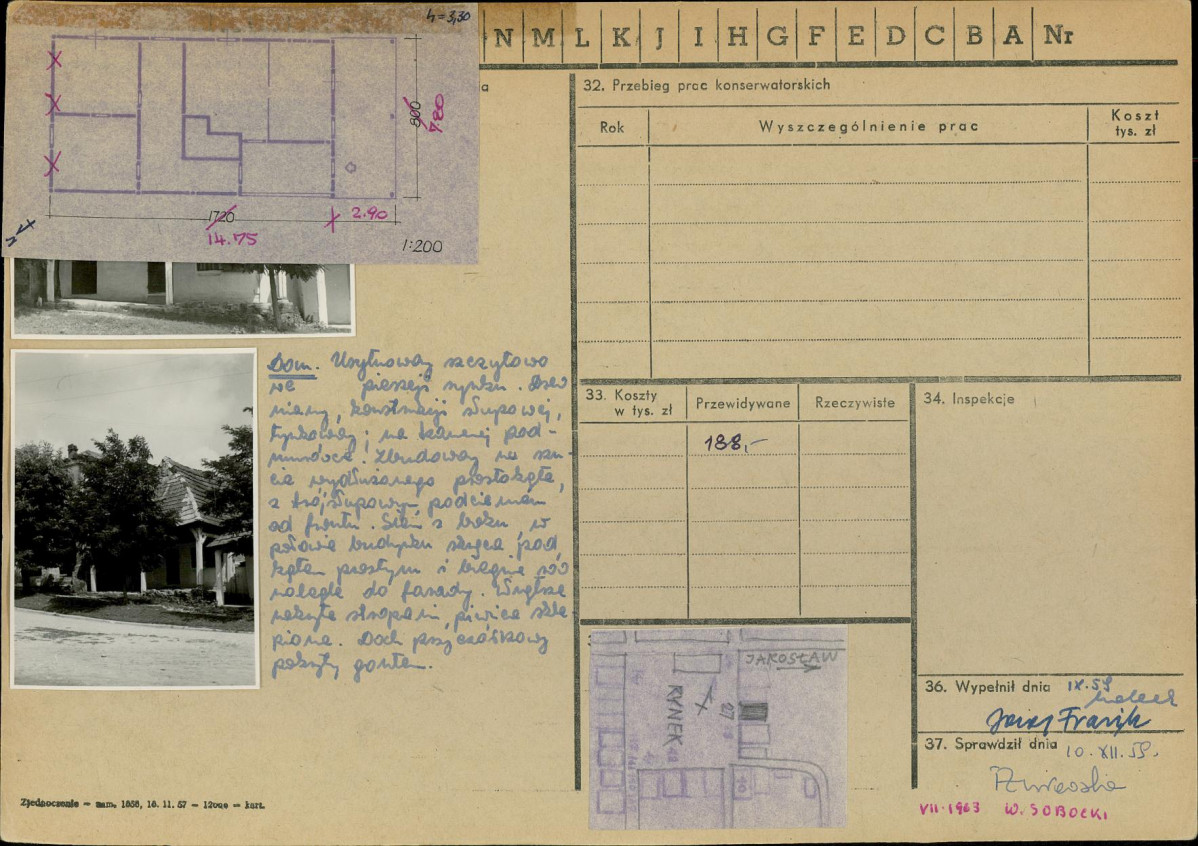 h=3,30
N M L K J I H G F E D C B A Nr
800
7.80
1720
14.75
2.90
1:200
N
a
32. Przebieg prac konserwatorskich
Rok
Wyszczególnienie prac
Koszt
tys. zł
Dom. Usytuowany szczytowo
we pierzeji rynku. Drew
niany, konstrukcji słupowej,
tynkowany; na kamiennej pod-
murówce. Zbudowany na rzu-
cie wydłużonego prostokąta,
z trójsłupowym podcieniem
od frontu. Sień z boku, w
połowie budynku skręca pod
kątem prostym i biegnie rów
nolegle do fasady. Wnętrze
nakryte stropami, piwnica skle
piona. Dach przyczółkowy
pokryty gontem.
33. Koszty
w tys. zł
Przewidywane
Rzeczywiste
188,-
34. Inspekcje
JAROSŁAW
RYNEK
27
36. Wypełnił dnia IX.59
Jerzy Frazik
37. Sprawdził dnia 10.XII.59.
VII-1963 W. SOBOCKI
Zjednoczenie — zam. 1858, 18. 11. 57 — 12000 — kart.